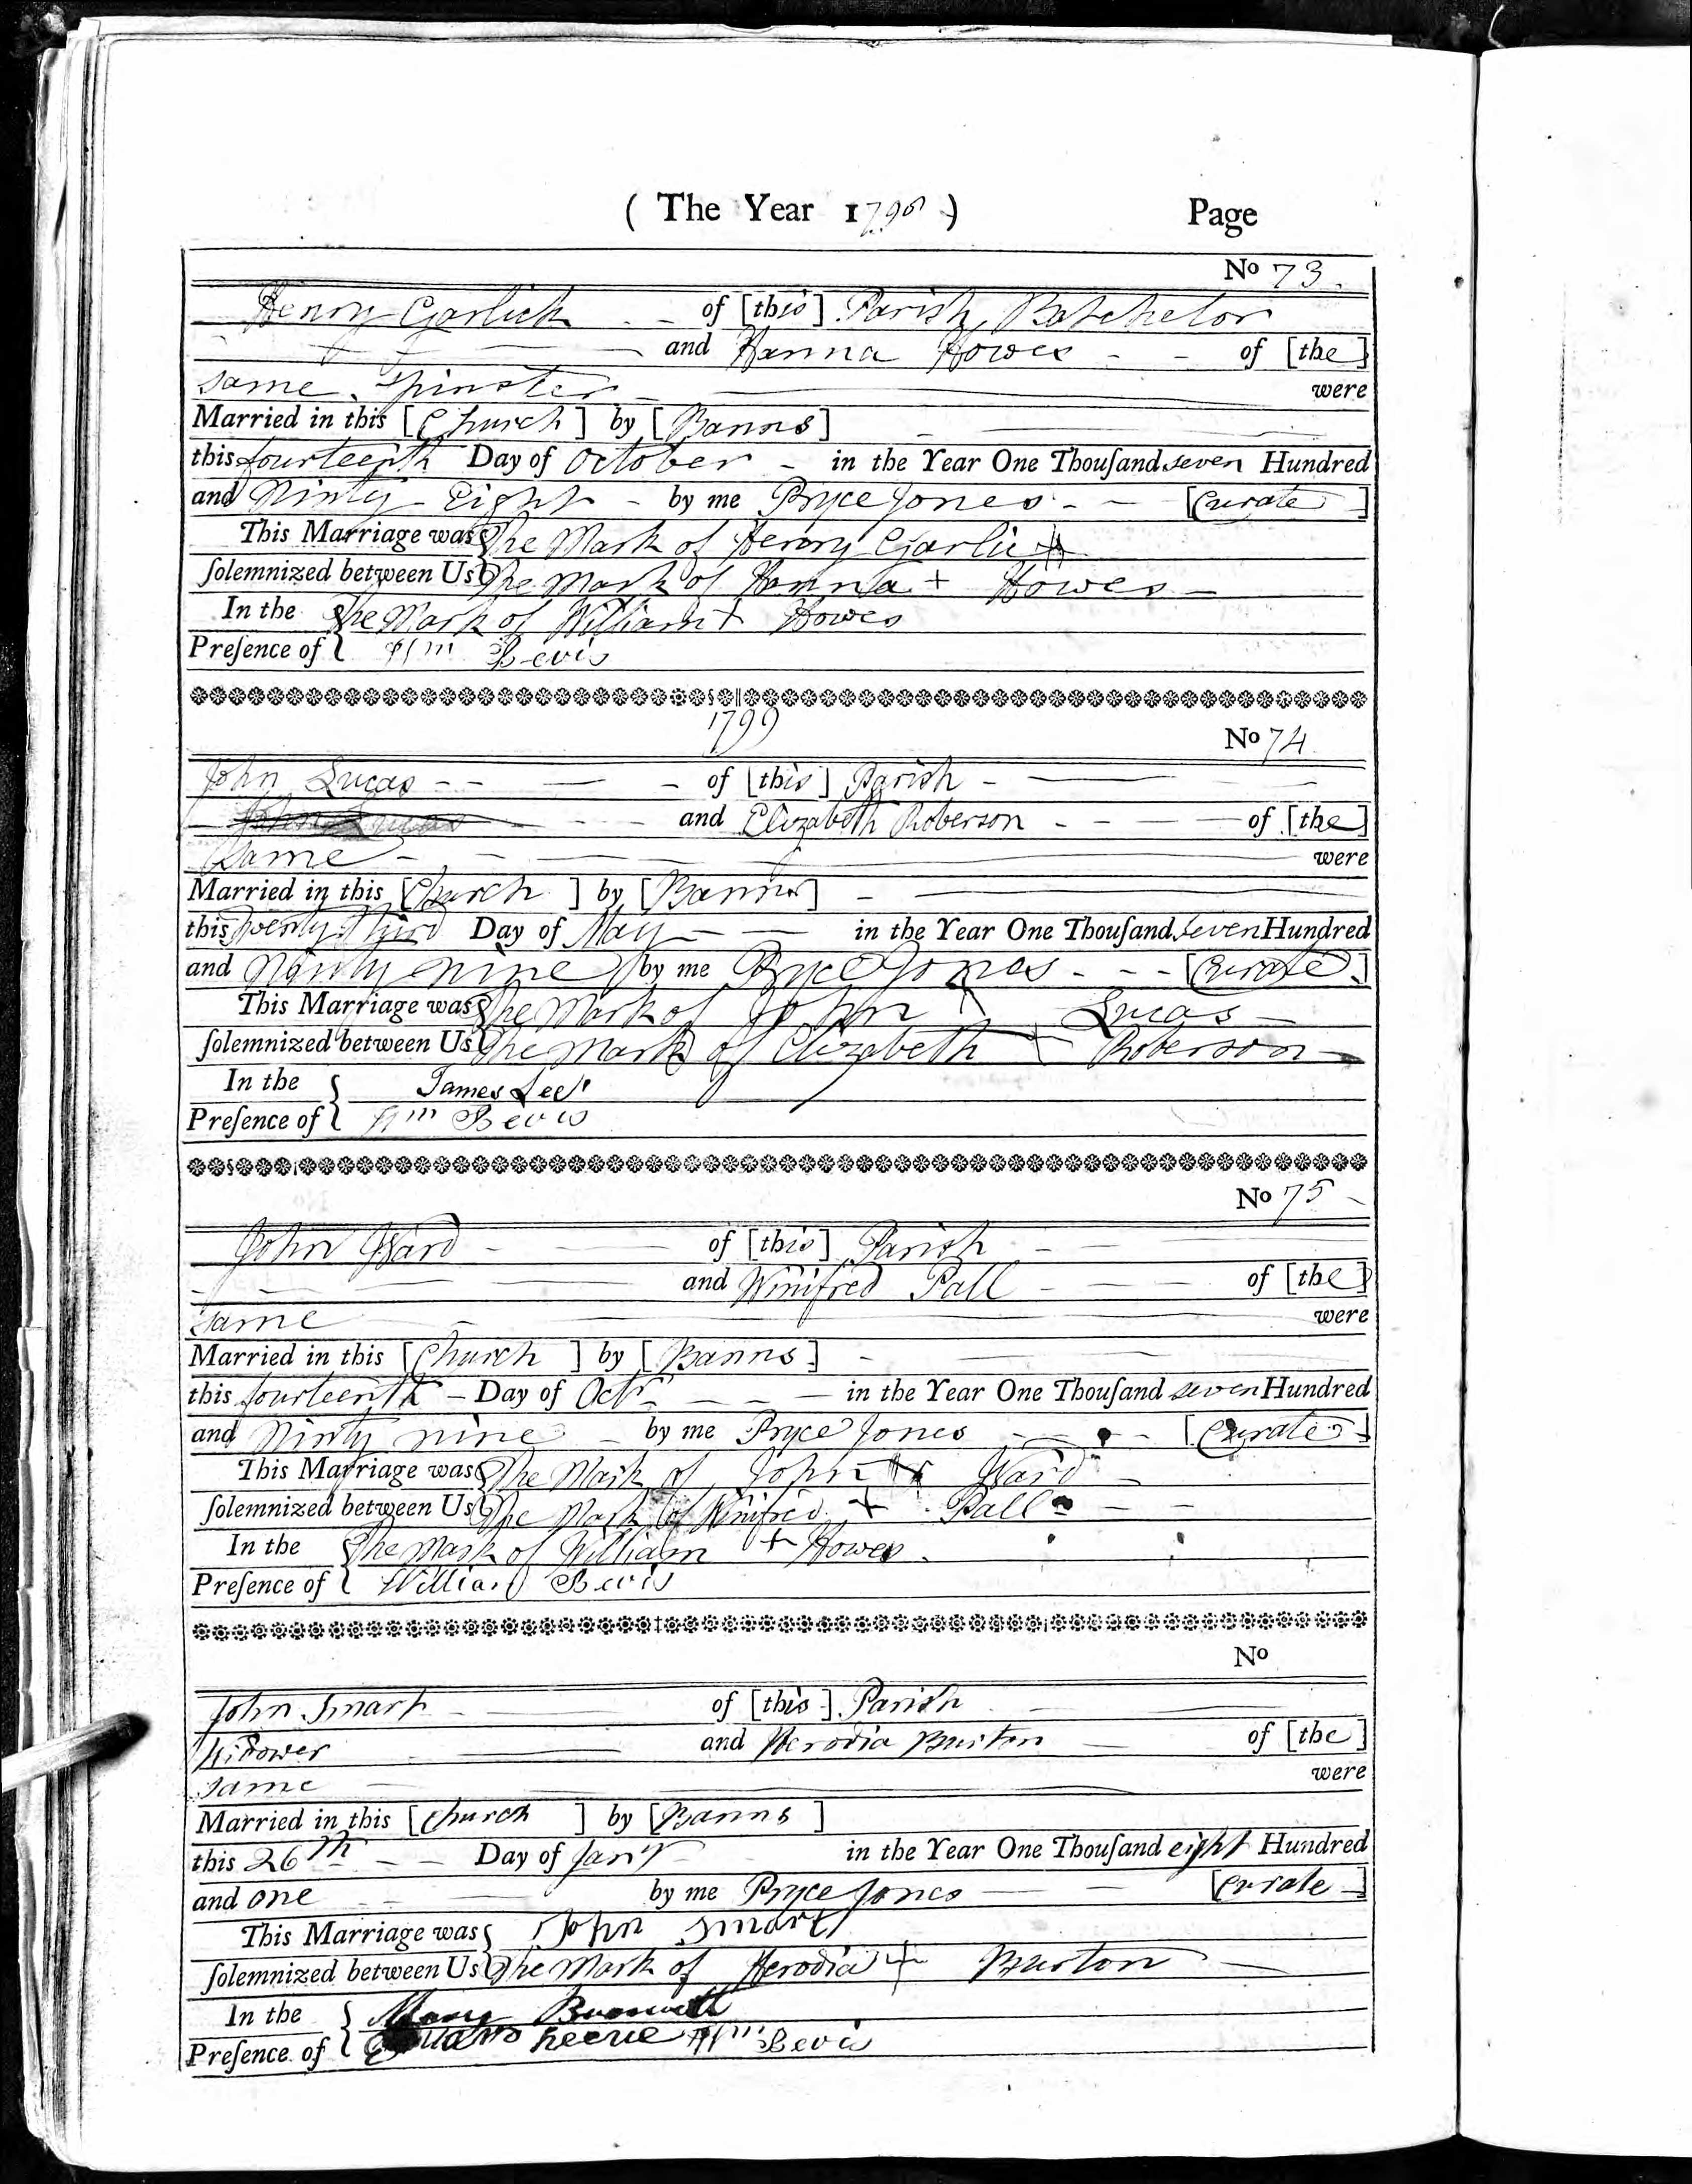 ( The Year 1798 ) Page
No 73.
Henry Garlick - - of [this] Parish, Batchelor
and Hanna Howes - - of [the]
same. Spinster were
Married in this [Church] by [Banns]
this fourteenth Day of October - in the Year One Thouſand seven Hundred
and Ninty - Eight - by me Pryce Jones - - [Curate]
This Marriage was The Mark of Henry Garlick
ſolemnized between Us The Mark of Hanna + Howes -
In the The Mark of William + Howes
Preſence of Wm Bevis
1799
No 74
John Lucas - - - of [this] Parish -
John Lucas - - - and Elizabeth Roberson - - - of [the]
Same - were
Married in this [Church] by [Banns] -
this Twenty Third Day of May - in the Year One Thouſand seven Hundred
and Ninty nine by me Pryce Jones - - - [Curate]
This Marriage was The Mark of John Lucas -
ſolemnized between Us The Mark of Elizabeth + Roberson -
In the James Lee
Preſence of Wm Bevis
No 75 -
John Ward - of [this] Parish -
and Winifred Pall - of [the]
same were
Married in this [Church] by [Banns] -
this fourteenth - Day of Octr - in the Year One Thouſand seven Hundred
and Ninty nine - by me Pryce Jones - - [Curate]
This Marriage was The Mark of John Ward -
ſolemnized between Us The Mark of Winifred + Pall - -
In the The Mark of William + Howes.
Preſence of William Bevis
No
John Smart - of [this] Parish
Widower and Herodia Burton of [the]
same were
Married in this [Church] by [Banns]
this 26th - - Day of Jany in the Year One Thouſand eight Hundred
and one by me Pryce Jones [Curate]
This Marriage was John Smart
ſolemnized between Us The Mark of Herodia + Burton
In the Mary
Preſence of Wm Bevis